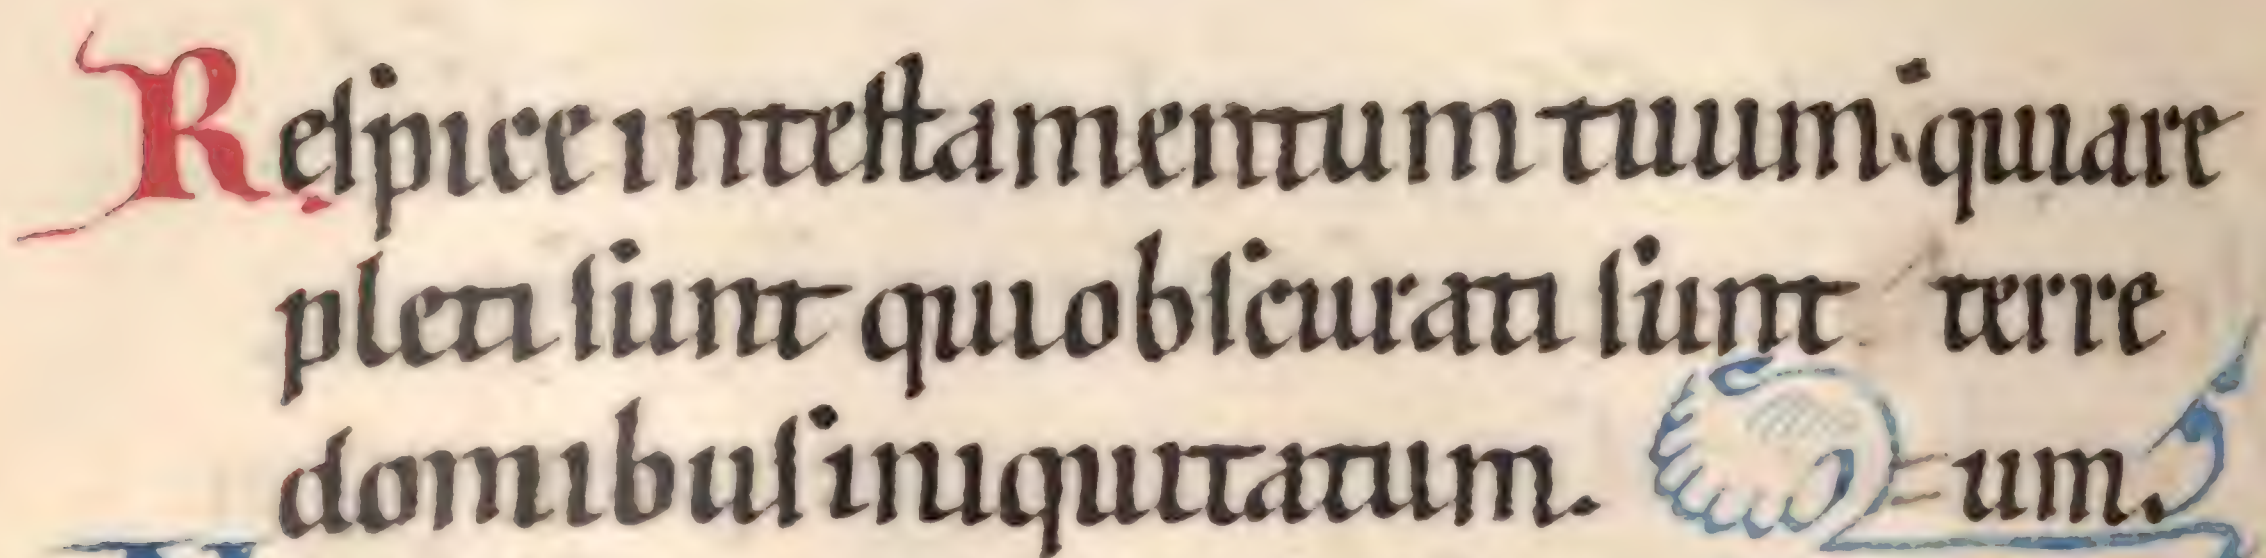 Reſpice inteſtamentum tuum· quiare
pleti ſunt qui obſcurati ſunt terre
domibuſ iniquitatum. um.